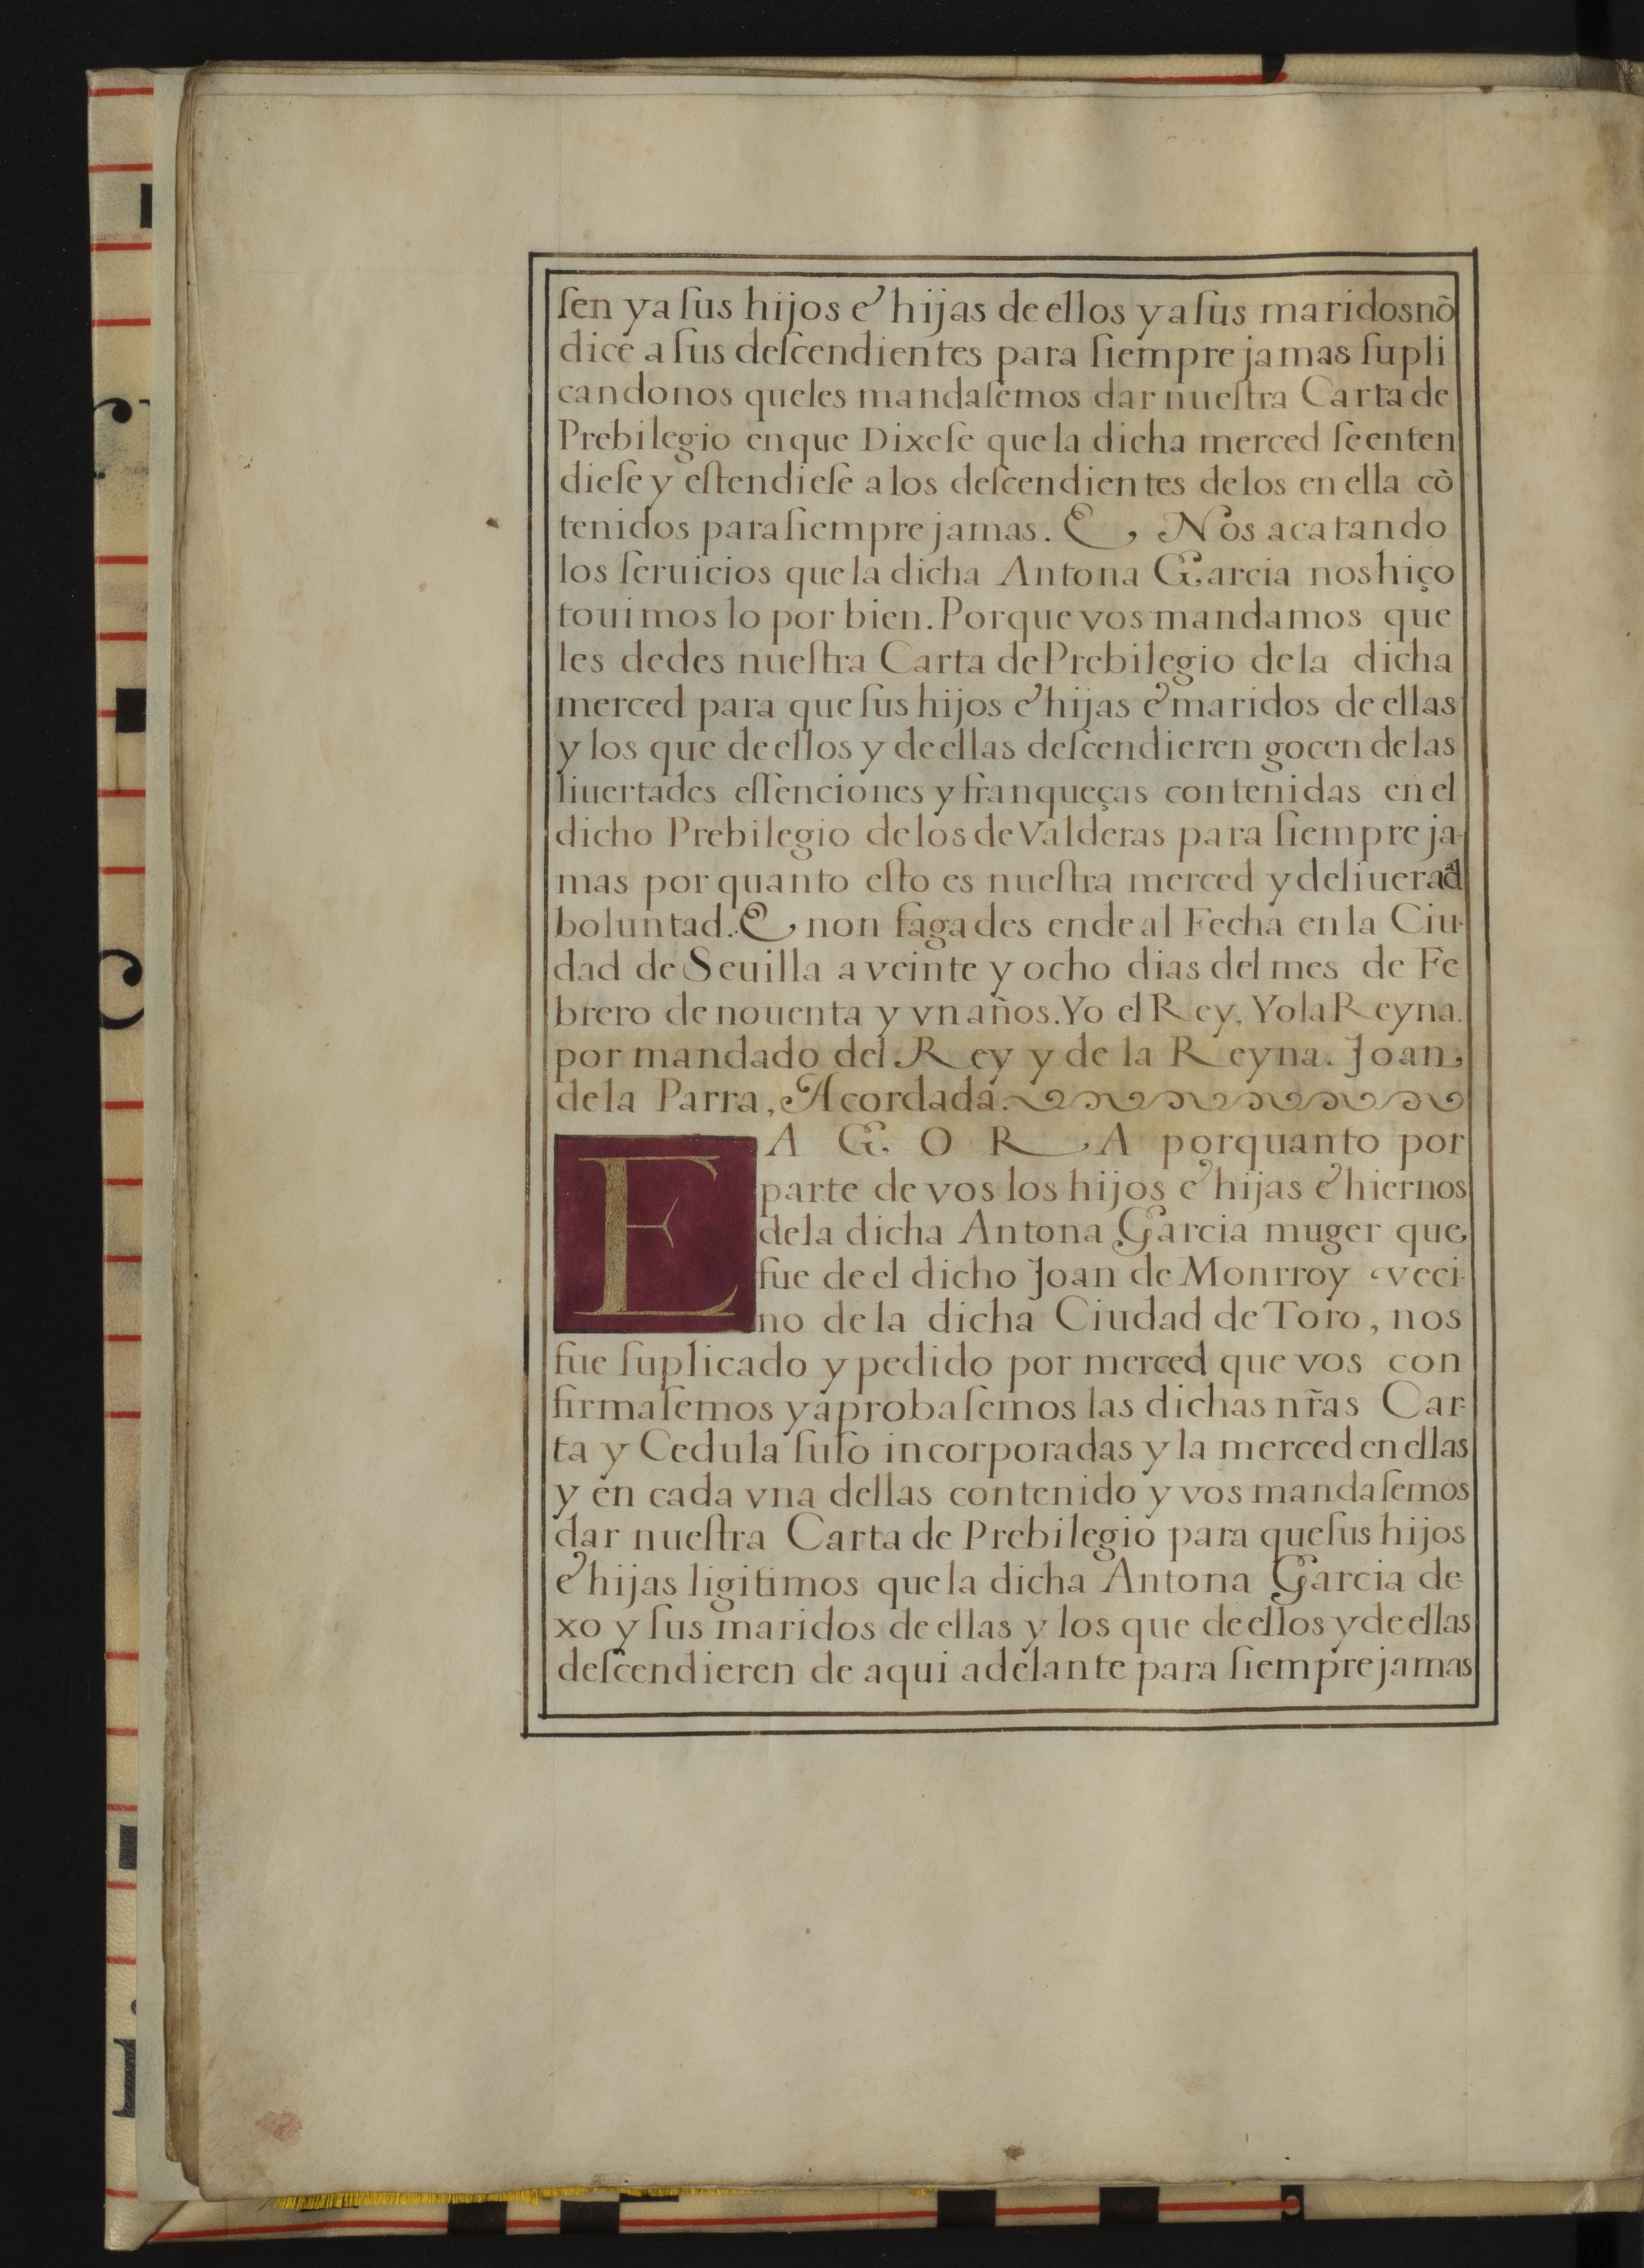 ſen y a ſus hijos e hijas de ellos y a ſus maridos nõ
dice a ſus deſcendientes para ſiempre jamas ſupli
candonos que les mandaſemos dar nueſtra Carta de
Prebilegio en que Dixeſe que la dicha merced ſe enten
dieſe y eſtendieſe a los deſcendientes de los en ella cõ
tenidos para ſiempre jamas. E, Nos acatando
los ſeruicios que la dicha Antona Garcia nos hiço
touimos lo por bien. Porque vos mandamos que
les dedes nueſtra Carta de Prebilegio de la dicha
merced para que ſus hijos e hijas e maridos de ellas
y los que de ellos y de ellas deſcendieren gocen de las
liuertades eſſenciones y franqueças contenidas en el
dicho Prebilegio de los de Valderas para ſiempre ja-
mas por quanto eſto es nueſtra merced y deliuerad
boluntad. E non fagades ende al Fecha en la Ciu-
dad de Seuilla a veinte y ocho dias del mes de Fe
brero de nouenta y vn años. Yo el Rey, Yo la Reyna.
por mandado del Rey y de la Reyna. Joan
de la Parra, Acordada.
E AGORA porquanto por
parte de vos los hijos e hijas e hiernos
de la dicha Antona Garcia muger que
fue de el dicho Joan de Monrroy veci-
no de la dicha Ciudad de Toro, nos
fue ſuplicado y pedido por merced que vos con
firmaſemos y aprobaſemos las dichas nr̃as Car-
ta y Cedula ſuſo incorporadas y la merced en ellas
y en cada vna dellas contenido y vos mandaſemos
dar nueſtra Carta de Prebilegio para que ſus hijos
e hijas ligitimos que la dicha Antona Garcia de-
xo y ſus maridos de ellas y los que de ellos y de ellas
deſcendieren de aqui adelante para ſiempre jamas